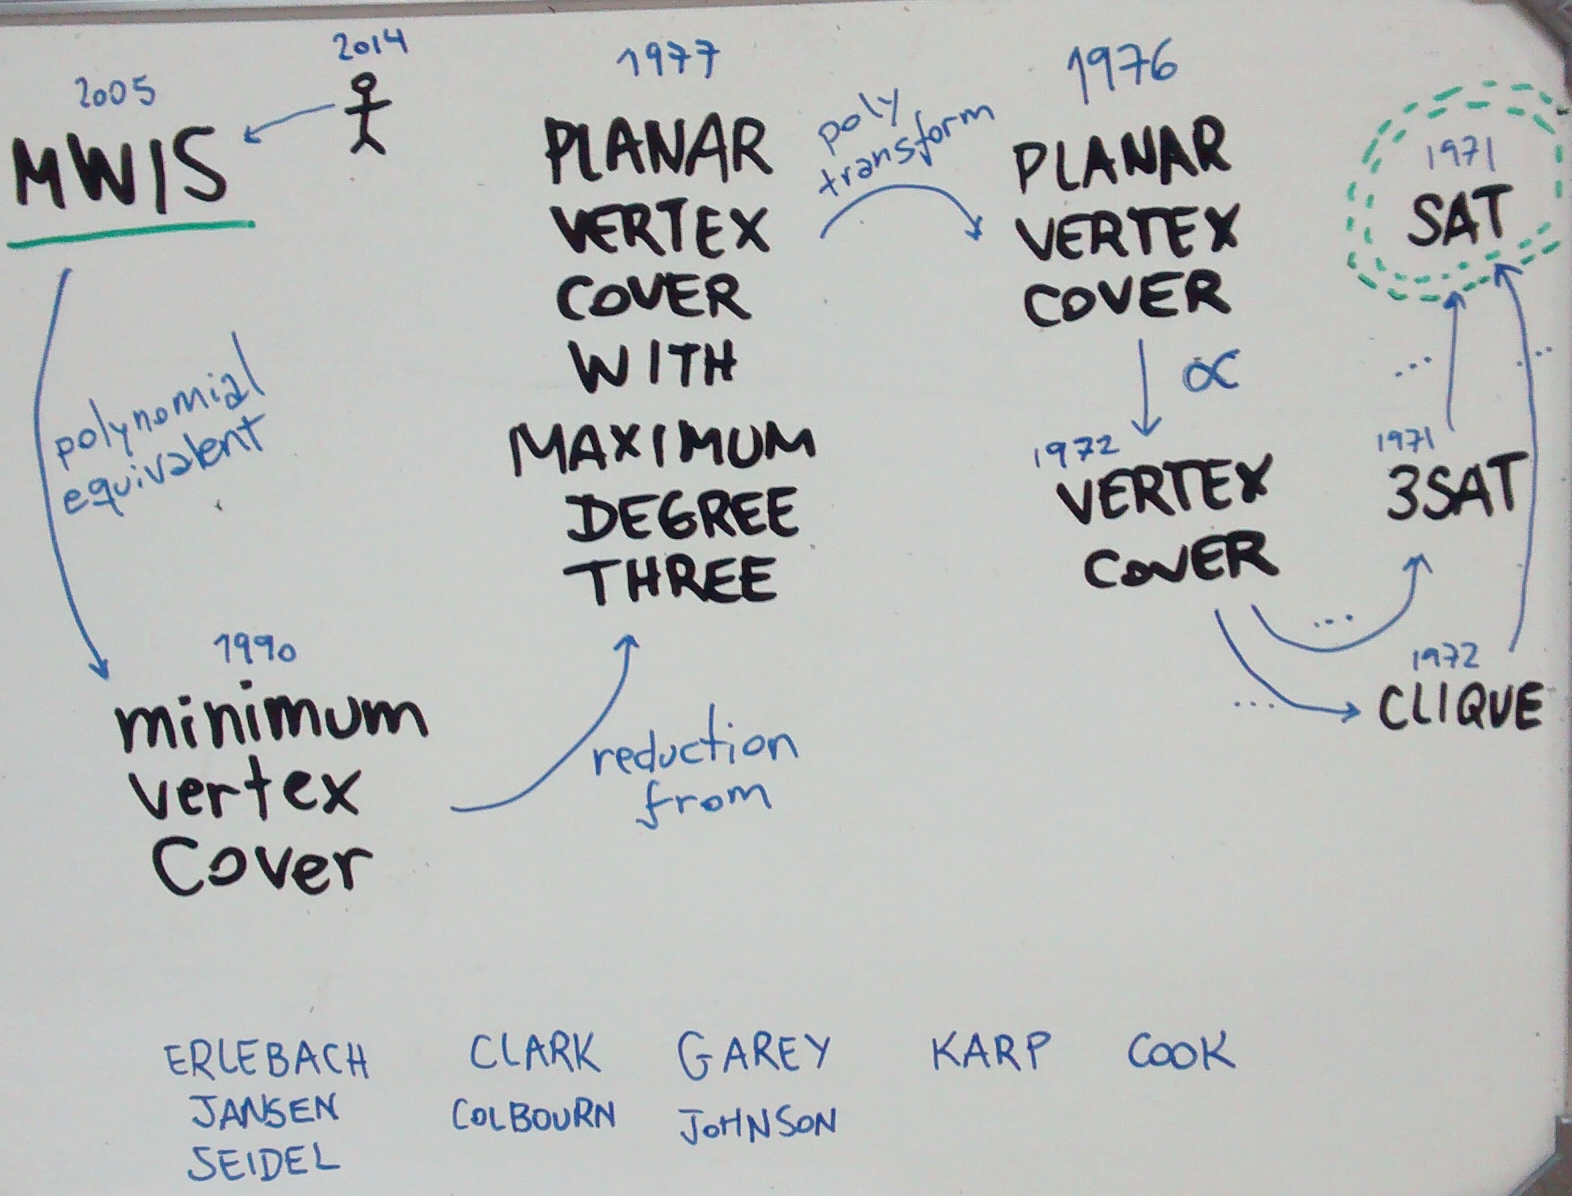 2005
MWIS
2014
polynomial
equivalent
1990
minimum
vertex
Cover
reduction
from
1977
PLANAR
VERTEX
COVER
WITH
MAXIMUM
DEGREE
THREE
poly
transform
1976
PLANAR
VERTEX
COVER
∝
1972
VERTEX
COVER
...
...
1971
SAT
...
...
1971
3SAT
1972
CLIQUE
ERLEBACH
JANSEN
SEIDEL
CLARK
COLBOURN
GAREY
JOHNSON
KARP
COOK